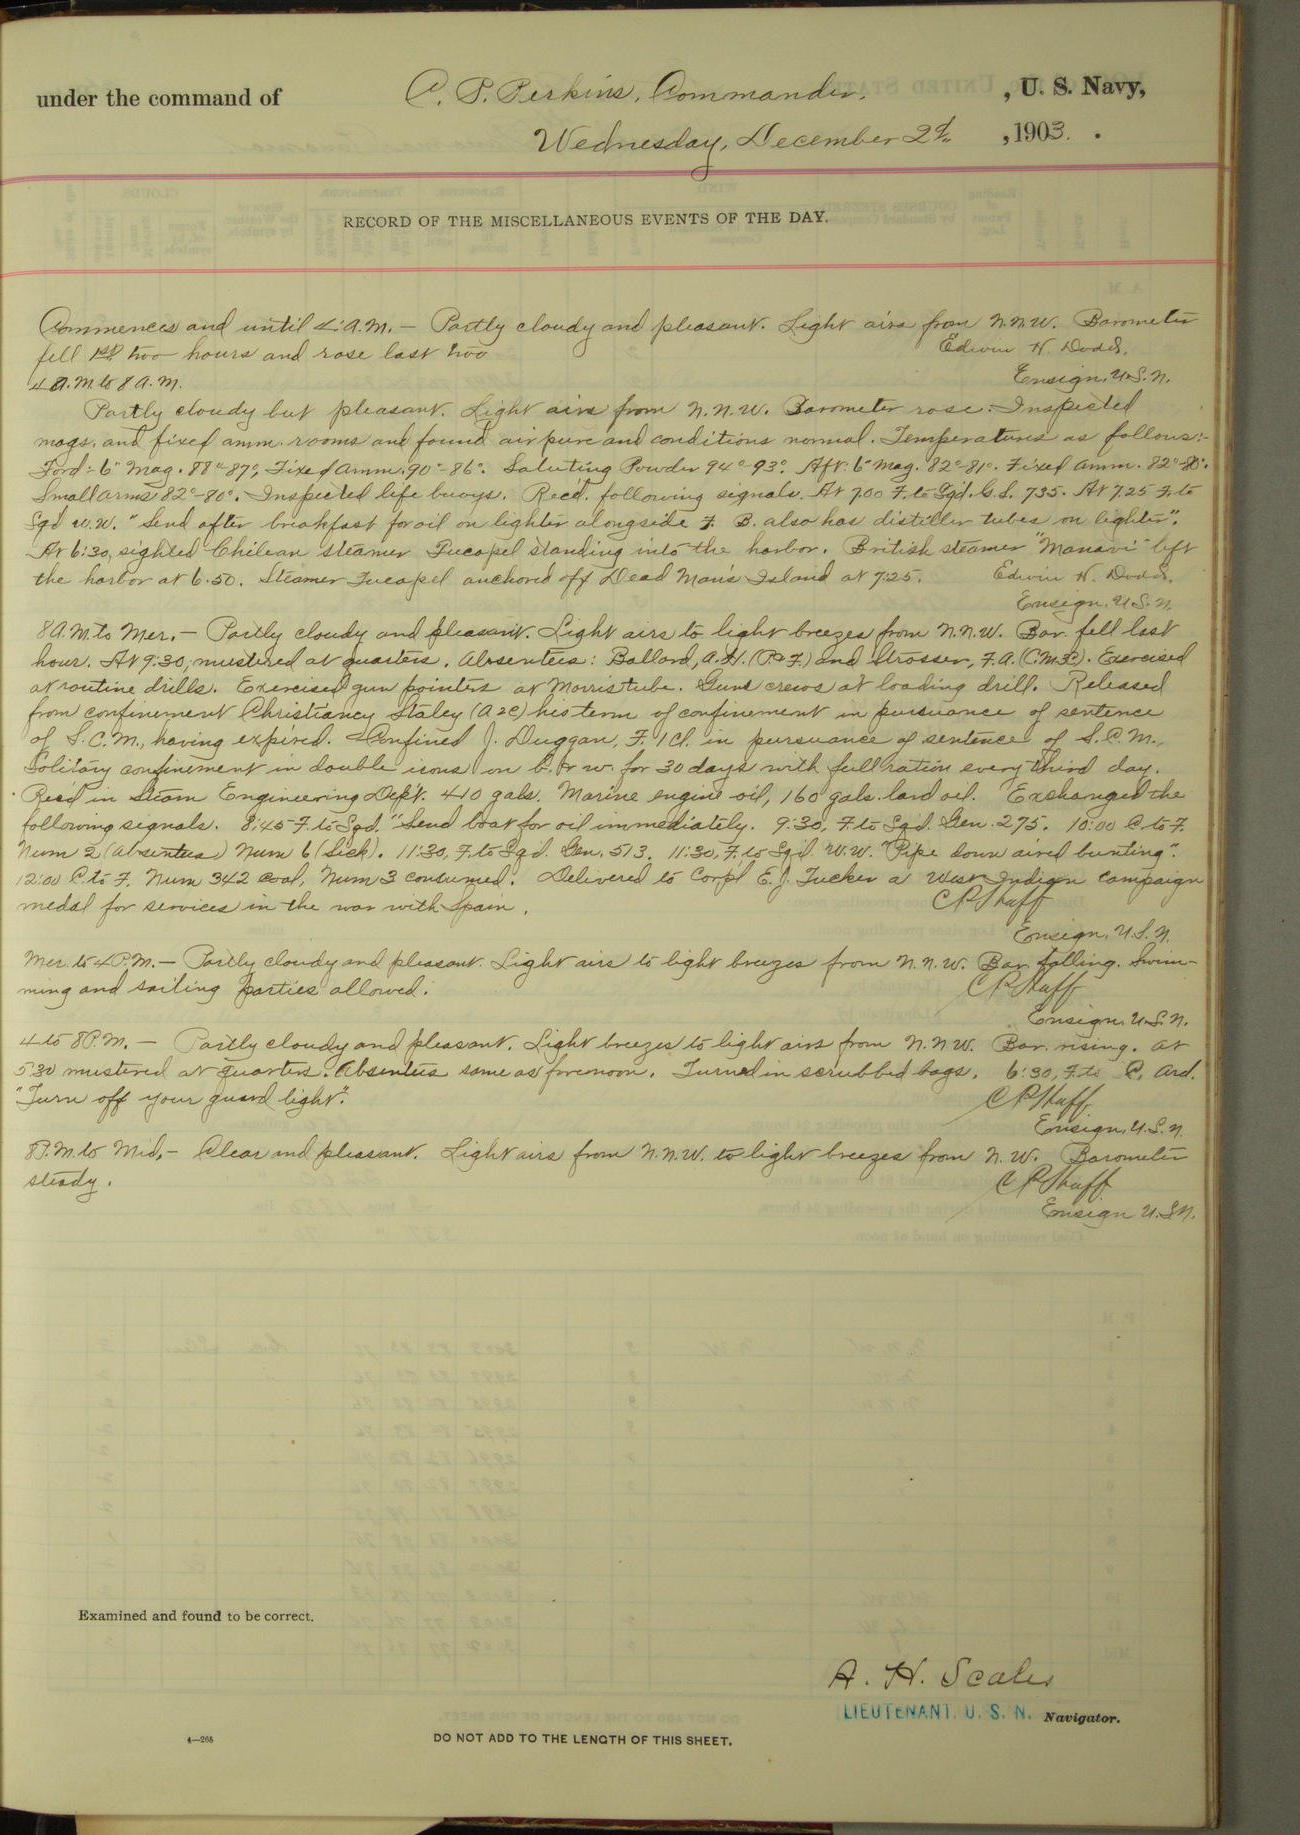 under the command of C. P. Perkins, Commander, , U. S. Navy,
Wednesday, December 2d, , 1903.
RECORD OF THE MISCELLANEOUS EVENTS OF THE DAY.
Commences and until 4: A.M. — Partly cloudy and pleasant. Light airs from N.N.W. Barometer
fell 1st two hours and rose last two
Edwin H. Dodd,
4 A.M. to 8 A.M.
Ensign, U.S.N.
Partly cloudy but pleasant. Light airs from N.N.W. Barometer rose. Inspected
mags. and fixed amm. rooms and found air pure and conditions normal. Temperatures as follows:-
Ford:- 6" Mag. 88°-87°, Fixed Amm. 90°-86°. Saluting Powder 94°-93°. Aft. 6" Mag. 82°-81°. Fixed Amm. 82°-80°.
Small arms 82°-80°. Inspected life buoys. Rec'd. following signals. At 7.00 F. to Sqd. G.S. 735. At 7.25 F. to
Sqd W.W. "Send after breakfast for oil on lighter alongside F. B. also has distiller tubes on lighter".
At 6:30, sighted Chilean steamer Tucapel standing into the harbor. British steamer "Manavi" left
the harbor at 6.50. Steamer Tucapel anchored off Dead Man's Island at 7:25. Edwin H. Dodd,
Ensign, U.S.N.
8 A.M. to Mer. — Partly cloudy and pleasant. Light airs to light breezes from N.N.W. Bar. fell last
hour. At 9:30, mustered at quarters. Absentees: Ballard, A.H. (P.F.) and Strosser, F.A. (C.M.). Exercised
at routine drills. Exercised gun pointers at Morris tube. Guns crews at loading drill. Released
from confinement Christiancy Staley (A 2 C) his term of confinement in pursuance of sentence
of S.C.M., having expired. Confined J. Duggan, F. 1 Cl. in pursuance of sentence of S.C.M.,
Solitary confinement in double irons on b. & w. for 30 days with full ration every third day.
Recd in Steam Engineering Dept. 410 gals. Marine engine oil, 160 gals. lard oil. Exchanged the
following signals. 8:45 F. to Sqd. "Send boat for oil immediately. 9:30, F. to Sqd. Gen. 275. 10:00 C. to F.
Num 2 (Absentees) Num 6 (Sick). 11:30, F. to Sqd. Gen. 513. 11:30, F. to Sqd W.W. "Pipe down aired bunting".
12:00 C. to F. Num 342 coal, Num 3 consumed. Delivered to Corp'l E.J. Tucker a West Indian campaign
medal for services in the war with Spain.
Ensign, U.S.N.
Mer. to 4 P.M. — Partly cloudy and pleasant. Light airs to light breezes from N.N.W. Bar. falling. Swim-
ming and sailing parties allowed.
Ensign, U.S.N.
4 to 8 P.M. — Partly cloudy and pleasant. Light breezes to light airs from N.N.W. Bar. rising. At
5.30 mustered at quarters. Absentees same as forenoon. Turned in scrubbed bags. 6:30, F. to C. Ard.
"Turn off your guard light".
Ensign, U.S.N.
8 P.M. to Mid. — Clear and pleasant. Light airs from N.N.W. to light breezes from N.W. Barometer
steady.
Ensign U.S.N.
Examined and found to be correct.
A. H. Scales
LIEUTENANT. U. S. N. Navigator.
4—265
DO NOT ADD TO THE LENGTH OF THIS SHEET.